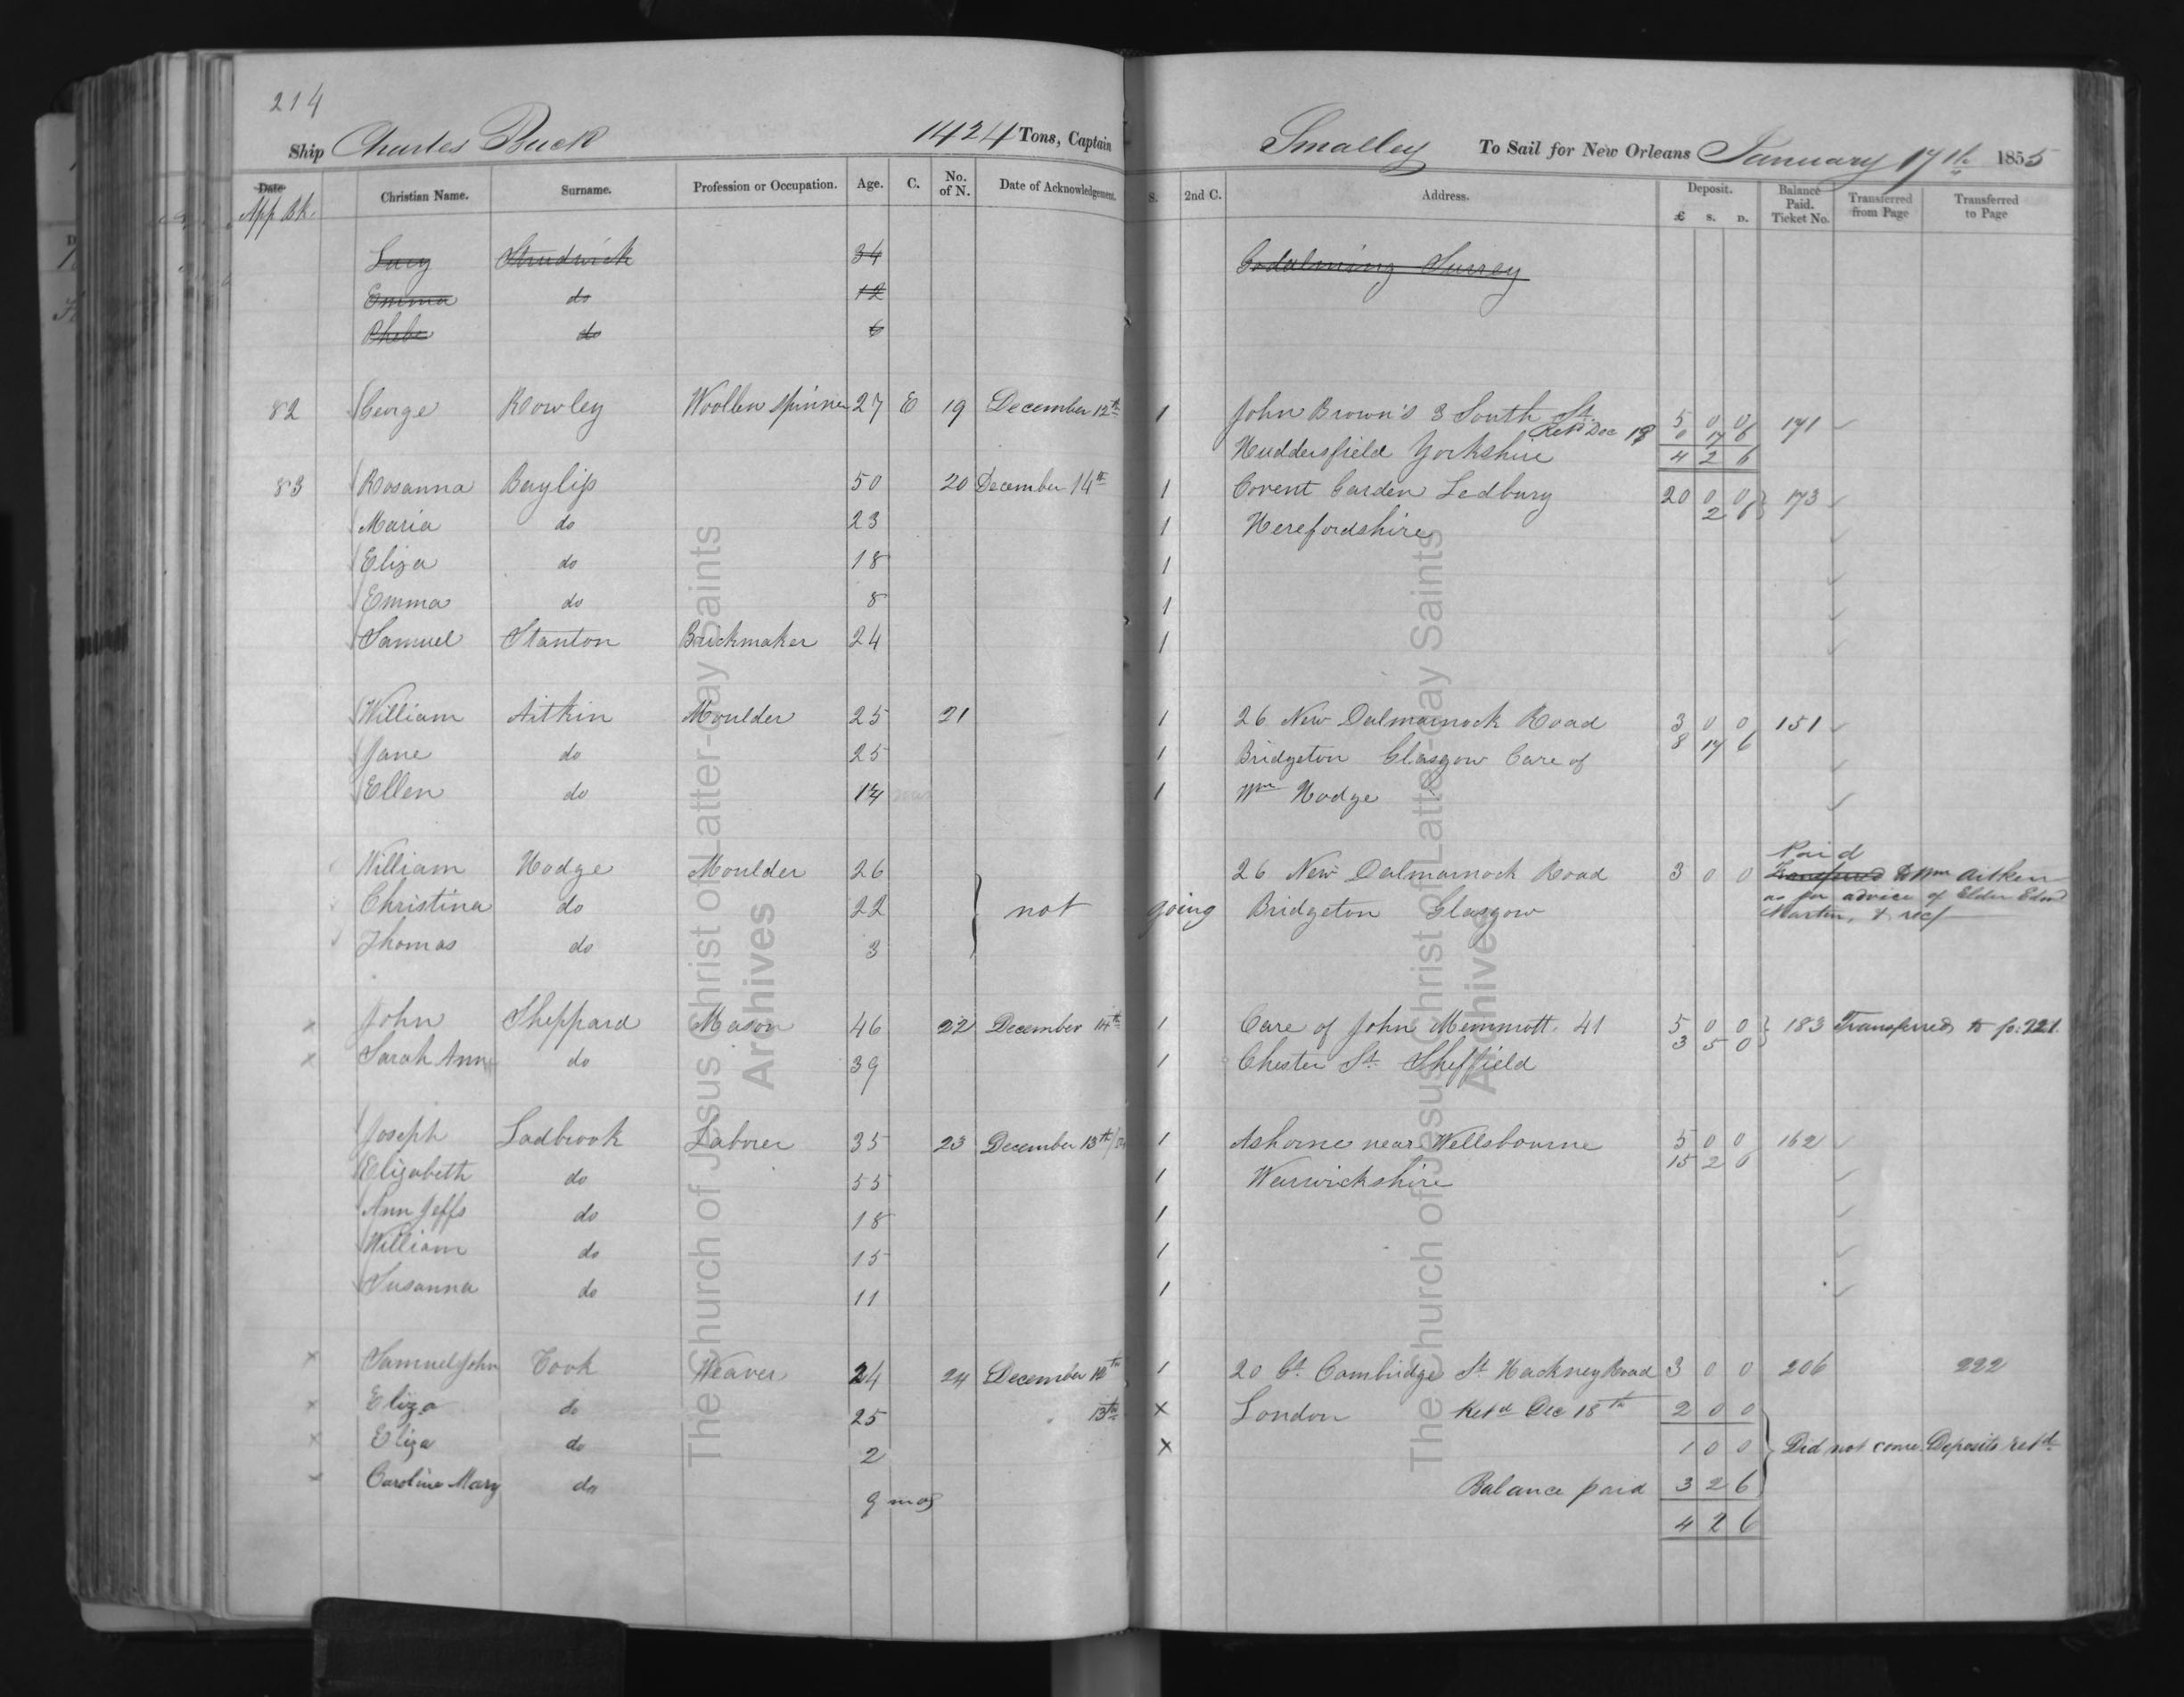 214
Ship Charles Buck 1424 Tons, Captain Smalley To Sail for New Orleans January 17th 1855
Date App Bk. Christian Name. Surname. Profession or Occupation. Age. C. No. of N. Date of Acknowledgement. S. 2nd C. Address. Deposit. £ s. D. Balance Paid. Ticket No. Transferred from Page Transferred to Page
Lucy Strudwick 34 Godalming Surrey
Emma do 12
Phebe do 6
82 George Rowley Woollen spinner 27 E 19 December 12th 1 John Brown's 3 South St 5 0 0 171
Retd Dec 18 0 17 6
Huddersfield Yorkshire 4 2 6
83 Rosanna Baylis 50 20 December 14th 1 Covent Garden Ledbury 20 0 0 173
Maria do 23 1 Herefordshire 2 6
Eliza do 18 1
Emma do 8 1
Samuel Stanton Brickmaker 24 1
William Aitkin Moulder 25 21 1 26 New Dalmarnock Road 3 0 0 151
Jane do 25 1 Bridgeton Glasgow Care of 8 17 6
Ellen do 1 Wm Hodge
William Hodge Moulder 26 26 New Dalmarnock Road 3 0 0 Paid Transferred to Wm Aitken
Christina do 22 not going Bridgeton Glasgow as per advice of Elder Edwd
Thomas do 3 Martin, & recp
x John Sheppard Mason 46 22 December 14th 1 Care of John Memmott. 41 5 0 0 183 Transferred to fo: 221.
x Sarah Ann do 39 1 Chester St Sheffield 3 5 0
Joseph Ladbrook Laborer 35 23 December 13th 1 Ashorne near Wellsbourne 5 0 0 162
Elizabeth do 55 1 Warwickshire 15 2 6
Ann Jeffs do 18 1
William do 15 1
Susanna do 11 1
x Samuel John Cook Weaver 24 24 December 1 20 Gt. Cambridge St Hackney Road 3 0 0 206 222
x Eliza do 25 13th x London Retd Dec 18th 2 0 0
x Eliza do 2 x 1 0 0 Did not come. Deposits retd.
x Caroline Mary do 9 mos Balance paid 3 2 6
4 2 6
The Church of Jesus Christ of Latter-day Saints
Archives
The Church of Jesus Christ of Latter-day Saints
Archives